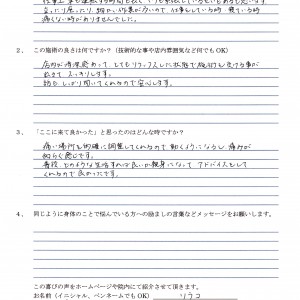 立ったり座ったり、細かい作業が多いので、仕事をしている時も、寝ている時も
痛くない時がありませんでした。
2、 この施術の良さは何ですか？（技術的な事や店内雰囲気など何でもOK）
店内が清潔感あって、とてもリラックスした状態で施術を受ける事が
出来て、スッキリします。
話も しっかり聞いてくれるので安心します。
3、 「ここに来て良かった」と思ったのはどんな時ですか？
痛い場所を的確に調整してくれるので 動くようになるし 痛みが
和らぐ感じです。
普段、どのような生活すれば良いか親身になって アドバイスをして
くれるので良かったです。
4、 同じように身体のことで悩んでいる方への励ましの言葉などメッセージをお願いします。
この喜びの声をホームページや院内にて紹介させて頂きます。
お名前（イニシャル、ペンネームでもOK）